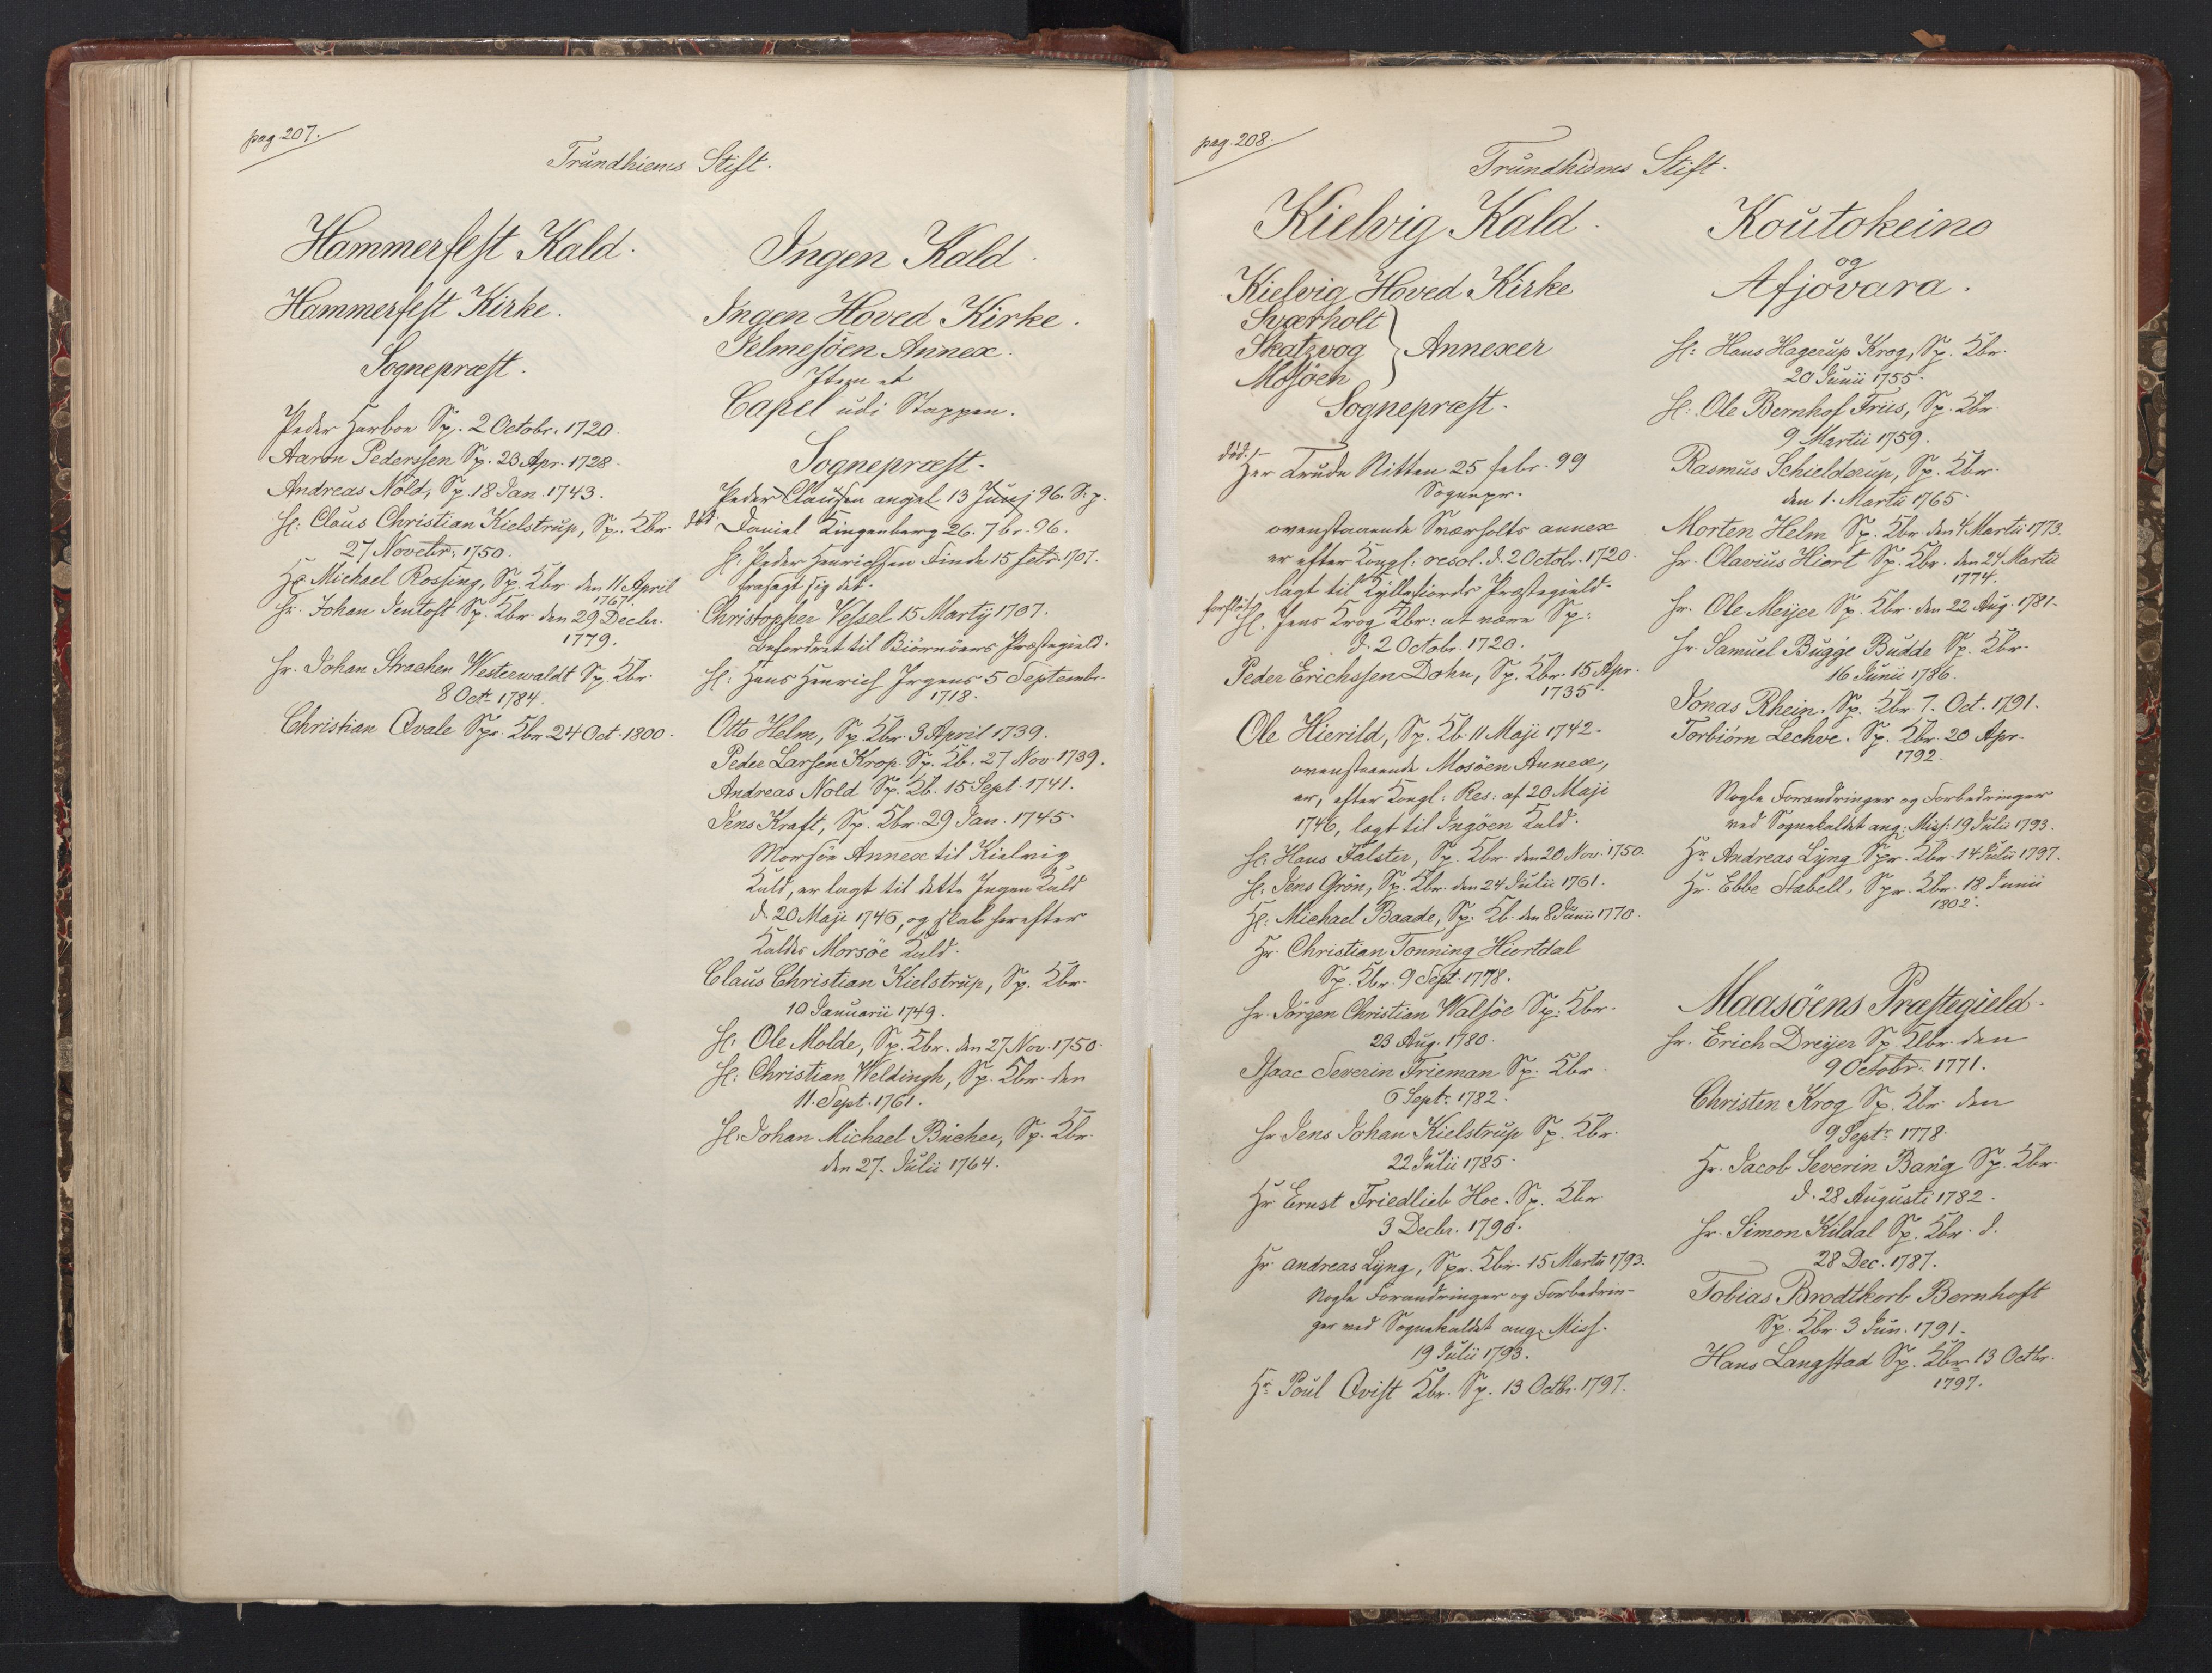 pag. 207.
Trundhiems Stift.
Hammerfest Kald.
Hammerfest Kirke.
Sognepræst.
Peder Harboe Sp. 2 Octobr. 1720.
Aaron Pederssen Sp. 23 Apr. 1728.
Andreas Nold, Sp. 18 Jan. 1743.
H: Claus Christian Kielstrup, Sp. Kbr.
27 Novebr: 1750.
Hr Michael Rossing, Sp. Kbr. den 11 April
1767.
Hr. Johan Tentoft Sp. Kbr. den 29 Decbr.
1779.
Hr. Johan Strachen Westerwaldt Sp. Kbr.
8 Oct. 1784.
Christian Qvale Spr. Kbr 24 Oct. 1800.
Ingen Kald.
Ingen Hoved Kirke.
Jelmesöen Annex.
Item et
Capel udi Stappen.
Sognepræst.
Peder Clausen angel 13 Junj 96. S.p.
død. Daniel Kingenberg 26. 7br. 96.
H. Peder Henrichsen Finde 15 Febr. 1707.
frasagt sig det.
Christopher Vessel 15 Martij 1707.
befordret til Biörnöers Præstegield.
H: Hans Henrich Irgens 5 Septembr.
1718.
Otto Helm, Sp. Kbr. 3 April 1739.
Peder Larsen Krop. Sp. Kb. 27 Nov. 1739.
Andreas Nold Sp. Kb. 15 Sept. 1741.
Jens Kraft, Sp. Kbr. 29 Jan. 1745.
Morsöe Annex til Kielvig
Kald, er lagt til dette Ingen Kald
d. 20 Maji 1746, og skal herefter
kaldes Morsöe Kald.
Claus Christian Kielstrup, Sp. Kbr.
10 Januarii 1749.
H: Ole Molde, Sp. Kbr. den 27 Nov. 1750.
H: Christian Weldingh, Sp. Kbr. den
11. Sept. 1761.
H: Johan Michael Bücher, Sp. Kbr.
den 27. Julii 1764.
pag. 208
Trundhiems Stift.
Kielvig Kald.
Kielvig Hoved Kirke
Sværholt
Skatzvog } Annexer
Mosöen
Sognepræst.
død.
Her Trude Nitten 25 febr. 99
Sognepr.
ovenstaaende Sværholts annex
er efter Kongl: resol. d. 2 Octobr. 1720.
lagt til Kyllefiords Præstegield.
forflöt. H. Jens Krog Kbr: at være Sp:
d. 2 Octobr. 1720.
Peder Erichssen Dohn, Sp. Kbr. 15 Apr.
1735.
Ole Hierild, Sp. Kb. 11 Maji 1742.
ovenstaaende Mosöen Annex,
er, efter Kongl: Res: af 20 Maji
1746, lagt til Ingöen Kald.
H: Hans Falster, Sp. Kbr. den 20 Nov. 1750.
H. Jens Grön, Sp. Kbr. den 24 Julii 1761.
H: Michael Baade, Sp. Kb. den 8 Junii 1770.
Hr. Christian Tonning Hiortdal
Sp. Kbr. 9 Sept. 1778.
Hr. Jörgen Christian Walsöe Sp: Kbr.
23 Aug. 1780.
Isaac Severin Frieman Sp. Kbr.
6 Sept: 1782.
Hr Jens Johan Kielstrup Sp. Kbr.
22 Julii 1785.
Hr Ernst Friedlieb Hoe. Sp. Kbr
3 Decbr. 1790.
Hr. andreas Lyng, Spr. Kbr. 15 Martii 1793.
Nogle Forandringer og Forbedrin-
ger ved Sognekaldet ang. Miss.
19 Julii 1793.
Hr Poul Qvist Kbr. Sp. 13 Octbr. 1797.
Koutokeino
og
Afjovara.
H: Hans Hagerup Krog, Sp. Kbr.
20 Junii 1755.
H: Ole Bernhof Friis, Sp. Kbr.
9 Martii 1759.
Rasmus Schielderup, Sp. Kbr.
den 1. Martii 1765.
Morten Helm Sp. Kbr. den 4 Martii 1773.
Hr. Olavius Hiort Sp. Kbr. den 24 Martii
1774.
Hr. Ole Meijer Sp. Kbr. den 22 Aug. 1781.
Hr. Samuel Bugge Budde Sp. Kbr.
16 Junii 1786.
Jonas Rhein. Sp. Kbr. 7. Oct. 1791.
Torbiörn Lechve. Sp. Kbr. 20 Apr.
1792.
Nogle Forandringer og Forbedringer
ved Sognekaldet ang: Miss: 19 Julii 1793.
Hr Andreas Lyng Spr. Kbr. 14 Julii 1797.
Hr. Ebbe Stabell, Spr. Kbr. 18 Junii
1802.
Maasöens Præstegield.
Hr. Erich Dreyer Sp. Kbr. den
9 Octobr: 1771.
Christen Krog Sp. Kbr den
9 Septr 1778.
Hr. Jacob Severin Bang Sp. Kbr.
d. 28 Augusti 1782.
Hr. Simon Kildal Sp. Kbr. d.
28 Dec. 1787.
Tobias Brodtkorb Bernhoft
Sp. Kbr. 3 Jun. 1791.
Hans Langstad Sp. Kbr. 13 Octbr.
1797.